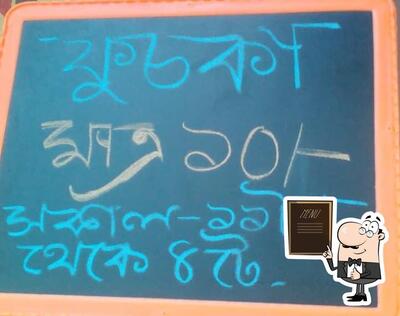 ফুচকা
মাত্র ১০/-
সকাল - ১১টা
থেকে ৪টে.
MENU